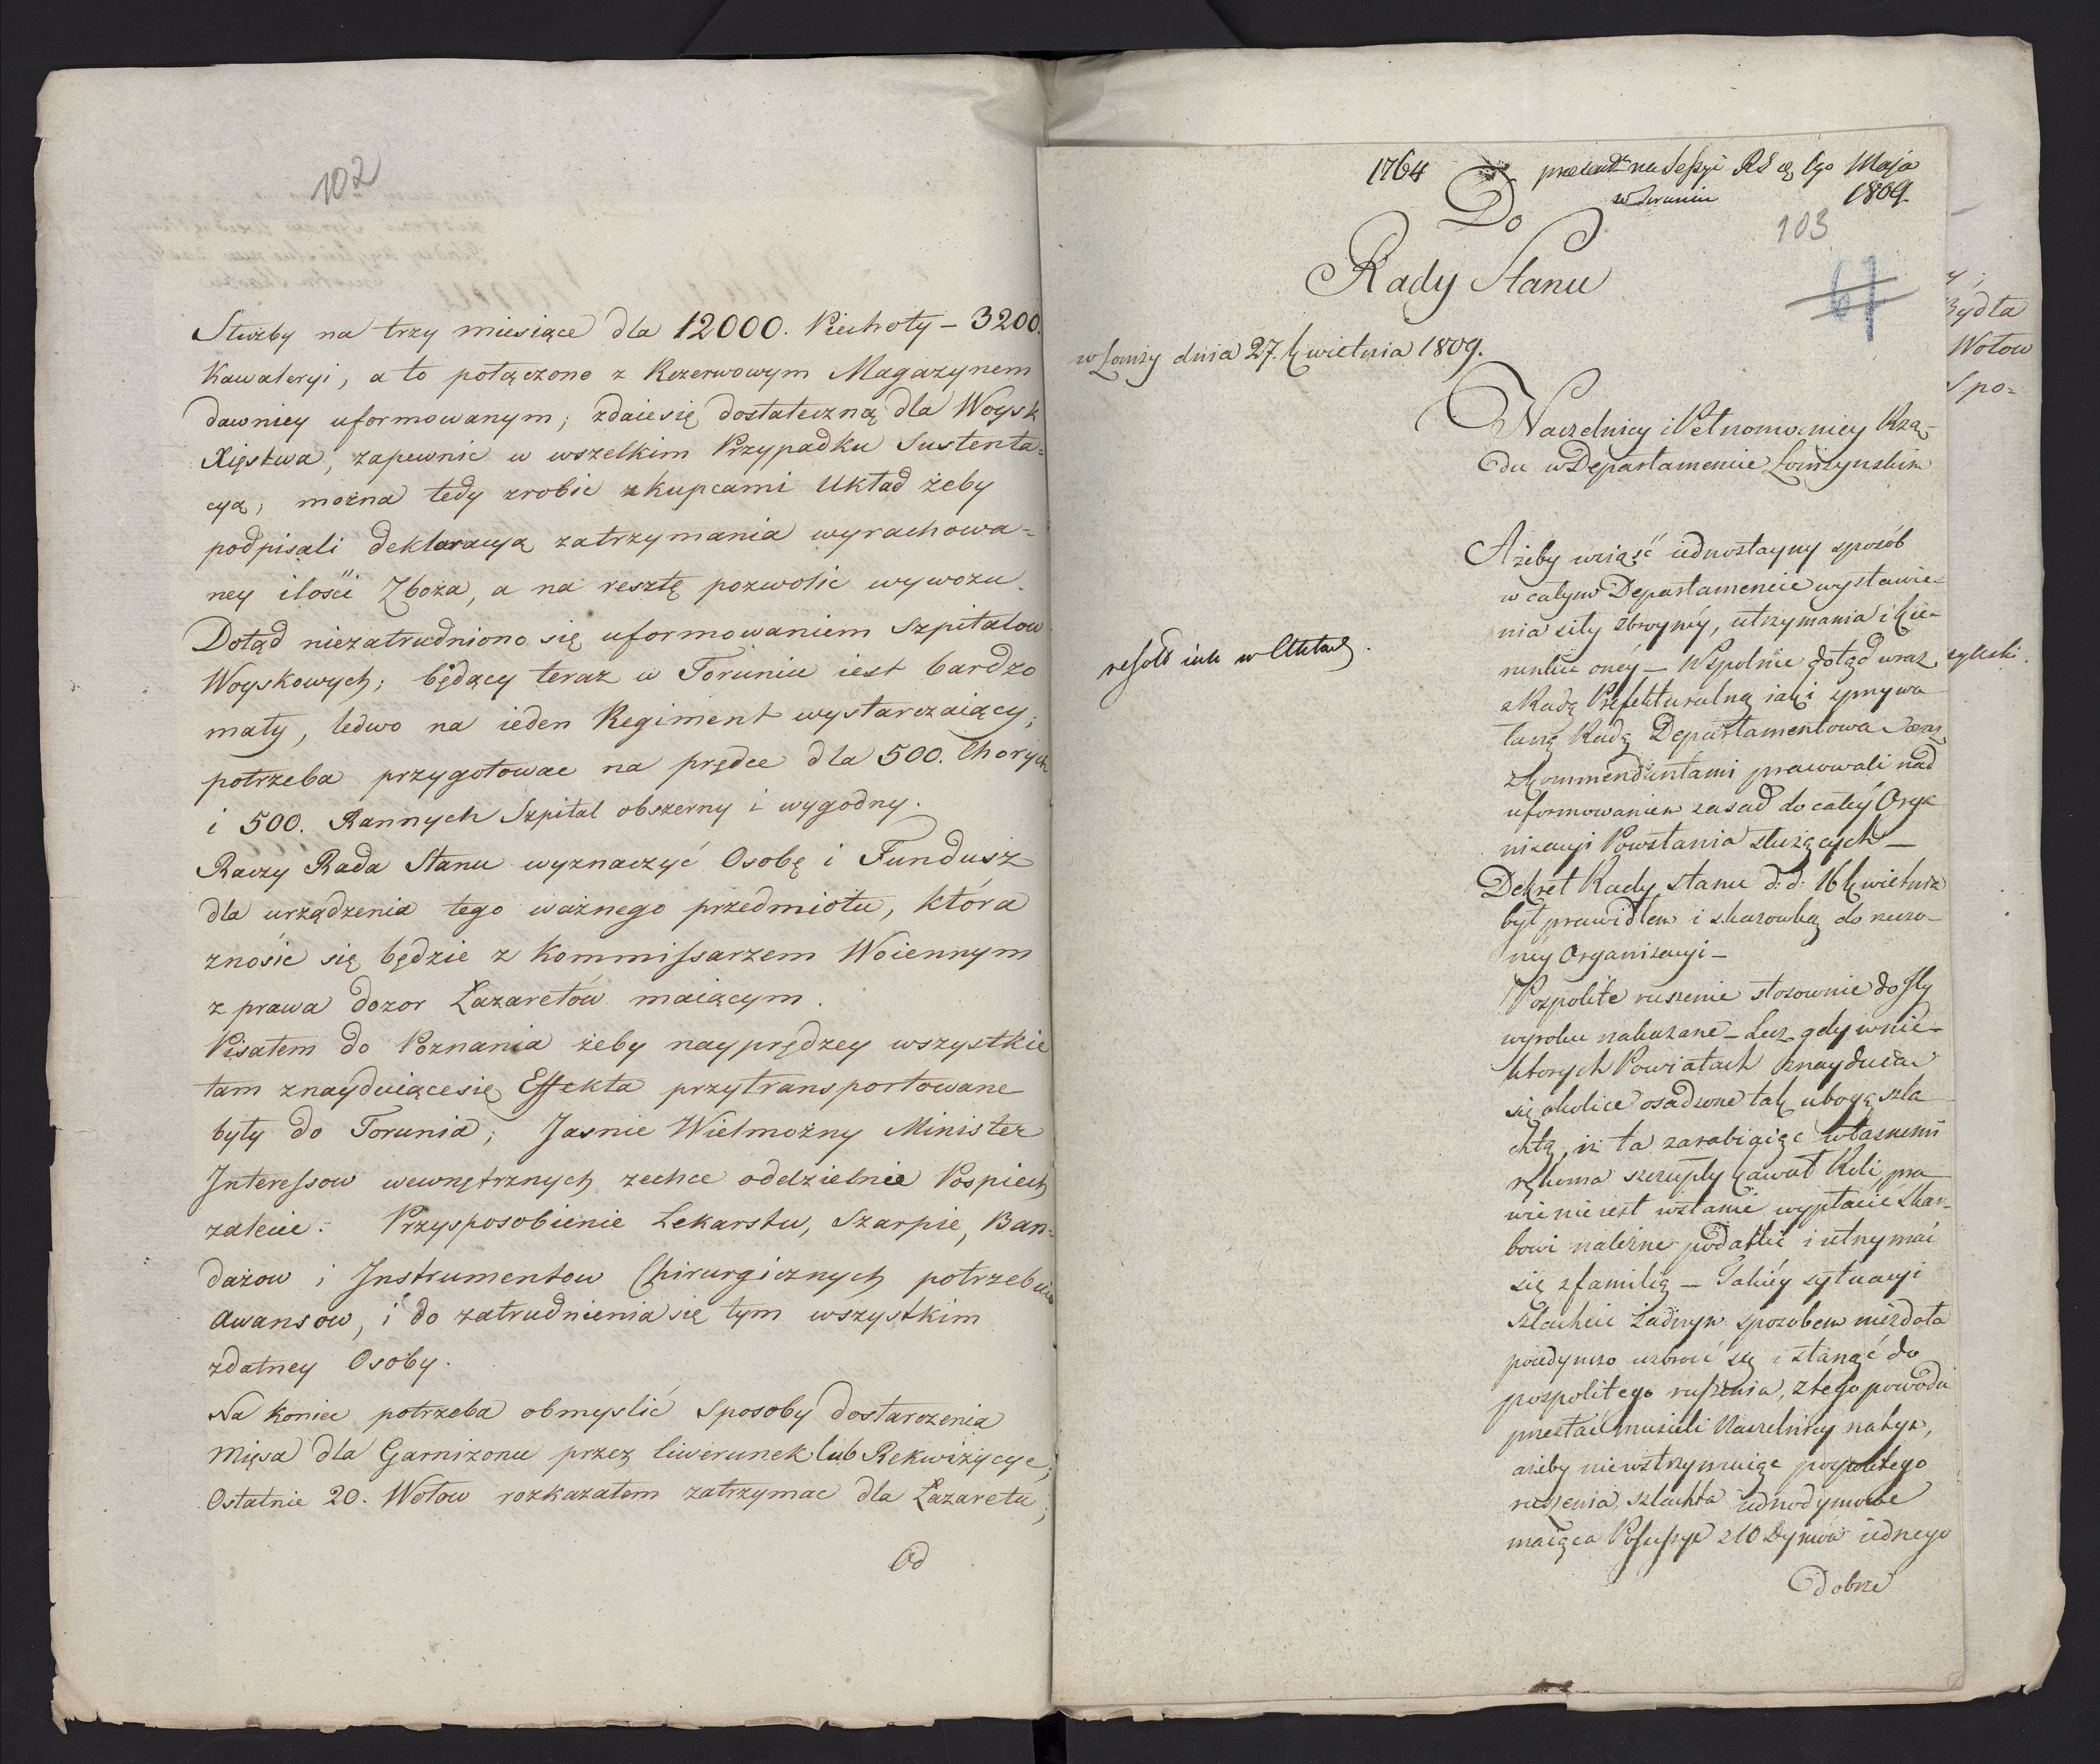 102
Służby na trzy miesiące dla 12000. Piechoty – 3200.
Kawaleryi, a to połączono z Rezerwowym Magazynem
dawniey uformowanym; zdaie się dostateczną dla Woysk
Xięstwa, zapewnić w wszelkim Przypadku Sustenta=
cyą, można tedy zrobić z kupcami Układ żeby
podpisali deklaracyą zatrzymania wyrachowa=
ney ilości Zboża, a na resztę pozwolić wywozu.
Dotąd niezatrudniono się uformowaniem Szpitalow
Woyskowych; będący teraz w Toruniu iest bardzo
mały, ledwo na ieden Regiment wystarczaiący;
potrzeba przygotować na prędce dla 500. Chorych
i 500. Rannych Szpital obszerny i wygodny.
Raczy Rada Stanu wyznaczyć Osobę i Fundusz
dla urządzenia tego ważnego przedmiotu, która
znosić się będzie z Kommissarzem Woiennym
z prawa dozor Lazaretów maiącym.
Pisałem do Poznania żeby nayprędzey wszystkie
tam znayduiące się Effekta przytransportowane
były do Torunia; Jasnie Wielmożny Minister
Interessow wewnętrznych zechce oddzielnie Pospiech
zalecić. Przysposobienie Lekarstw, Szarpie, Ban=
dażow i Instrumentow Chirurgicznych potrzebuie
Awansow, i do zatrudnienia się tym wszystkim
zdatney Osoby.
Na koniec potrzeba obmyslić Sposoby dostarczenia
Mięsa dla Garnizonu przez liwerunek lub Rekwizycye;
Ostatnie 20. Wołow rozkazałem zatrzymac dla Lazaretu;
Od
1764 na Sessyi RS d. 1go Maja
w Toruniu 1809
103
67
Do
Rady Stanu
w Łomży dnia 27. Kwietnia 1809.
Naczelnicy i Pełnomocnicy Rzą-
du w Departamencie Łomżynskim
Ażeby wziąść iednostayny sposób
w całym Departamencie wystawie-
nia siły zbroyney, utrzymania i kie-
runku oney – Wspolnie dotąd wraz
z Radą Prefekturalną iak i zprzywo
łaną Radą Departamentową oraz
z Kommendantami pracowali nad
uformowaniem zasad do całey Orga
nizacyi Powstania służących –
Dekret Rady stanu d: d: 16 Kwietnia
był prawidłem i skazowką do rzeczo-
ney Organizacyi –
Pospolite ruszenie stosownie do
wyroku nakazane – Lecz gdy w nie-
ktorych Powiatach znayduią
się okolice osadzone tak ubogą szla
chtą, iż ta zarabiaiąc własnemi
rękoma szczupły kawał Roli, pra
wie nie iest wstanie wypłacić skar-
bowi należne podatki i utrzymać
się z familią – Takiey sytuacyi
szlachcic żadnym sposobem niezdoła
poiedynczo uzbroić się i stanąć do
pospolitego ruszenia, z tego powodu
przestać musieli Naczelnicy na tym,
ażeby niewstrzymuiąc pospolitego
ruszenia, szlachta iednodymowa
maiąca Possessye z 10 Dymów iednego
Dobrze
resolv iak w Aktach.